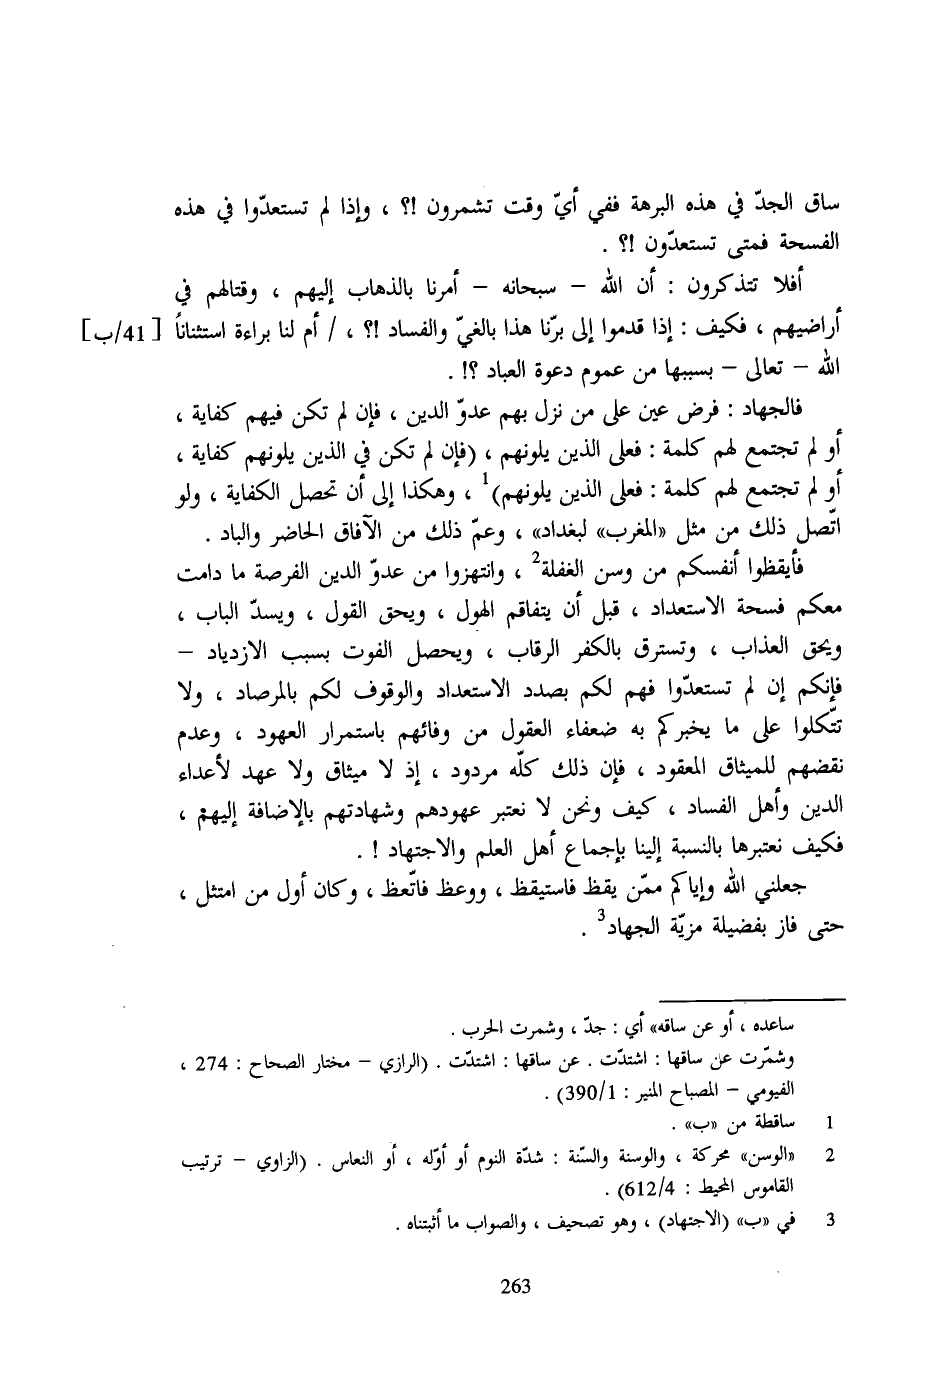 ساق الجدّ في هذه البرهة ففي أيّ وقت تشمرون !؟ ، وإذا لم تستعدّوا في هذه
الفسحة فمتى تستعدّون !؟ .
أفلا تتذكرون : أن الله – سبحانه – أمرنا بالذهاب إليهم ، وقتالهم في
أراضيهم ، فكيف : إذا قدموا إلى برّنا هذا بالغيّ والفساد !؟ ، / أم لنا براءة استثناناً [ 41/ب]
الله – تعالى – بسببها من عموم دعوة العباد ؟! .
فالجهاد : فرض عين على من نزل بهم عدوّ الدين ، فإن لم تكن فيهم كفاية ،
أو لم تجتمع لهم كلمة : فعلى الذين يلونهم ، (فإن لم تكن في الذين يلونهم كفاية ،
أو لم تجتمع لهم كلمة : فعلى الذين يلونهم)1 ، وهكذا إلى أن تحصل الكفاية ، ولو
اتّصل ذلك من مثل «المغرب» لبغداد» ، وعمّ ذلك من الآفاق الحاضر والباد .
فأيقظوا أنفسكم من وسن الغفلة2 ، وانتهزوا من عدوّ الدين الفرصة ما دامت
معكم فسحة الاستعداد ، قبل أن يتفاقم الهول ، ويحق القول ، ويسدّ الباب ،
ويحق العذاب ، وتسترق بالكفر الرقاب ، ويحصل الفوت بسبب الازدياد –
فإنكم إن لم تستعدّوا فهم لكم بصدد الاستعداد والوقوف لكم بالمرصاد ، ولا
تتّكلوا على ما يخبركم به ضعفاء العقول من وفائهم باستمرار العهود ، وعدم
نقضهم للميثاق المعقود ، فإن ذلك كلّه مردود ، إذ لا ميثاق ولا عهد لأعداء
الدين وأهل الفساد ، كيف ونحن لا نعتبر عهودهم وشهادتهم بالإضافة إليهم ،
فكيف نعتبرها بالنسبة إلينا بإجماع أهل العلم والاجتهاد ! .
جعلني الله وإياكم ممّن يقظ فاستيقظ ، ووعظ فاتّعظ ، وكان أول من امتثل ،
حتى فاز بفضيلة مزيّة الجهاد3 .
ساعده ، أو عن ساقه» أي : جدّ ، وشمرت الحرب .
وشمّرت عن ساقها : اشتدّت . عن ساقها : اشتدّت . (الرازي – مختار الصحاح : 274 ،
الفيومي – المصباح المنير : 390/1) .
1 ساقطة من «ب» .
2 «الوسن» محركة ، والوسنة والسّنة : شدّة النوم أو أوّله ، أو النعاس . (الزاوي – ترتيب
القاموس المحيط : 612/4) .
3 في «ب» (الاجتهاد) ، وهو تصحيف ، والصواب ما أثبتناه .
263